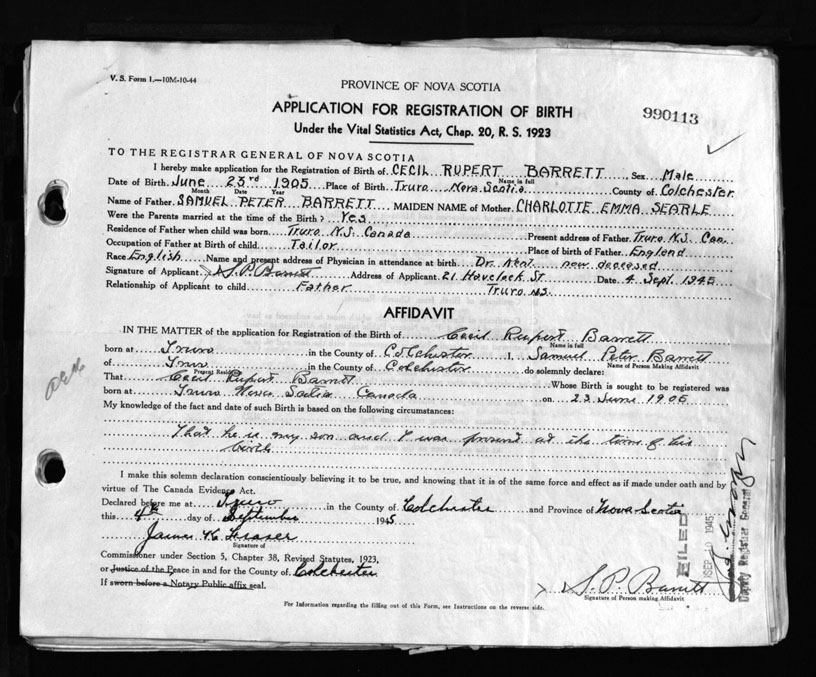 V. S. Form 1.—10M-10-44
PROVINCE OF NOVA SCOTIA
APPLICATION FOR REGISTRATION OF BIRTH
990113
Under the Vital Statistics Act, Chap. 20, R. S. 1923
TO THE REGISTRAR GENERAL OF NOVA SCOTIA
I hereby make application for the Registration of Birth of CECIL RUPERT BARRETT Sex Male
Name in full
Date of Birth June 23rd 1905 Place of Birth Truro Nova Scotia County of Colchester
Month Date Year
Name of Father SAMUEL PETER BARRETT MAIDEN NAME of Mother CHARLOTTE EMMA SEARLE
Were the Parents married at the time of the Birth? Yes
Residence of Father when child was born Truro N.S. Canada Present address of Father Truro N.S. Can.
Occupation of Father at Birth of child Tailor Place of birth of Father England
Race English Name and present address of Physician in attendance at birth Dr. Kent now deceased
Signature of Applicant S.P. Barrett Address of Applicant 21 Havelock St Date 4 Sept. 1945
Relationship of Applicant to child Father Truro N.S.
AFFIDAVIT
IN THE MATTER of the application for Registration of the Birth of Cecil Rupert Barrett
Name in full
born at Truro in the County of Colchester I, Samuel Peter Barrett
Name of Person Making Affidavit
of Truro in the County of Colchester do solemnly declare:
Present Residence
That Cecil Rupert Barrett Whose Birth is sought to be registered was
born at Truro Nova Scotia Canada on 23 June 1905
My knowledge of the fact and date of such Birth is based on the following circumstances:
That he is my son and I was present at the time of his
birth
I make this solemn declaration conscientiously believing it to be true, and knowing that it is of the same force and effect as if made under oath and by
virtue of The Canada Evidence Act.
Declared before me at Truro in the County of Colchester and Province of Nova Scotia
this 4th day of September 1945
James K Fraser
Signature of
Commissioner under Section 5, Chapter 38, Revised Statutes, 1923,
or Justice of the Peace in and for the County of Colchester
If sworn before a Notary Public affix seal.
S. P. Barrett
Signature of Person making Affidavit
For Information regarding the filling out of this Form, see Instructions on the reverse side.
FILED
SEP 10 1945
Deputy Registrar General